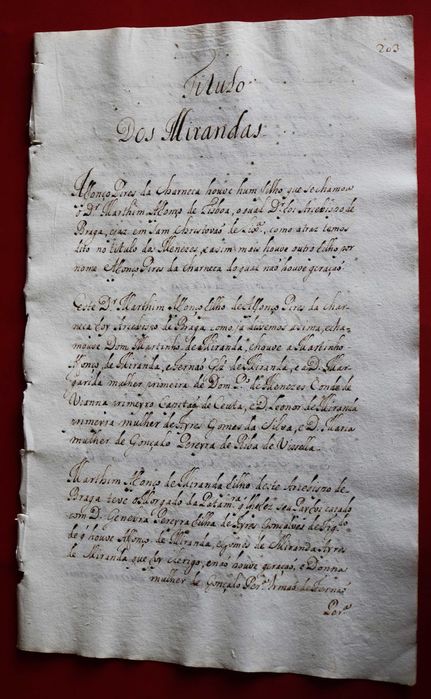 203
Titulo
Dos Mirandas
Affonço Pires da Charneca houve hum filho que se chamou
o D.r Marthim Afonço de Lisboa, o qual D.r foi Arcebispo de
Braga, e jaz em Sam Christovão de Lx.ª, como atraz temos
dito no titulo da Menezes, e asim mais houve outro filho por
nome Afonço Pires da Charneca do qual não houve geração
Este D.r Marthim Afonço filho de Affonço Pires da Char-
neca foy Arcebispo de Braga como ja dissemos asima, e cha-
mouse Dom Martinho de Miranda, e houve a Martinho
Afonço de Miranda, e Fernão Glz de Miranda, e a D. Mar-
garida mulher primeira de Dom P.º de Menezes Conde de
Vianna primeyro Capitaõ de Ceuta, e D. Leonor de Miranda
primeyra mulher de Ayres Gomes da Silva, e D. Maria
mulher de Gonçalo Pereyra de Riba de Vizella.
Marthim Afonço de Miranda filho deste Arcebispo de
Braga teve o Morgado da Patam.ra q lhe fez seu Pay foy cazado
com D. Genevra Pereyra filha de Ayres Gonsalves de Fig.do
de q houve Afonço de Miranda, e Gomes de Miranda Ayres
de Miranda que foy Clerigo, e não houve geração, e Donna
mulher de Gonçalo Per.ª Irmaõ de Fernaõ
Per.ª